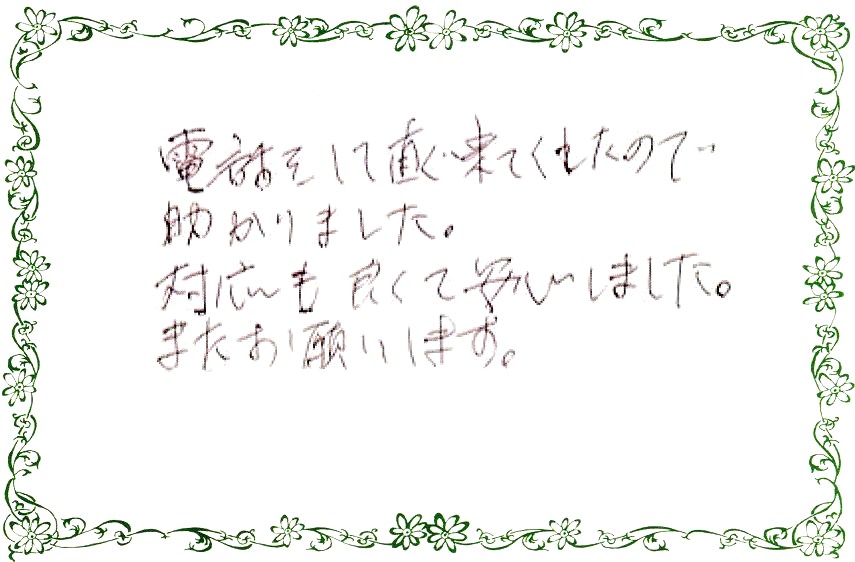 電話をして直ぐ来てくれたので
助かりました。
対応も良くて安心しました。
またお願いします。